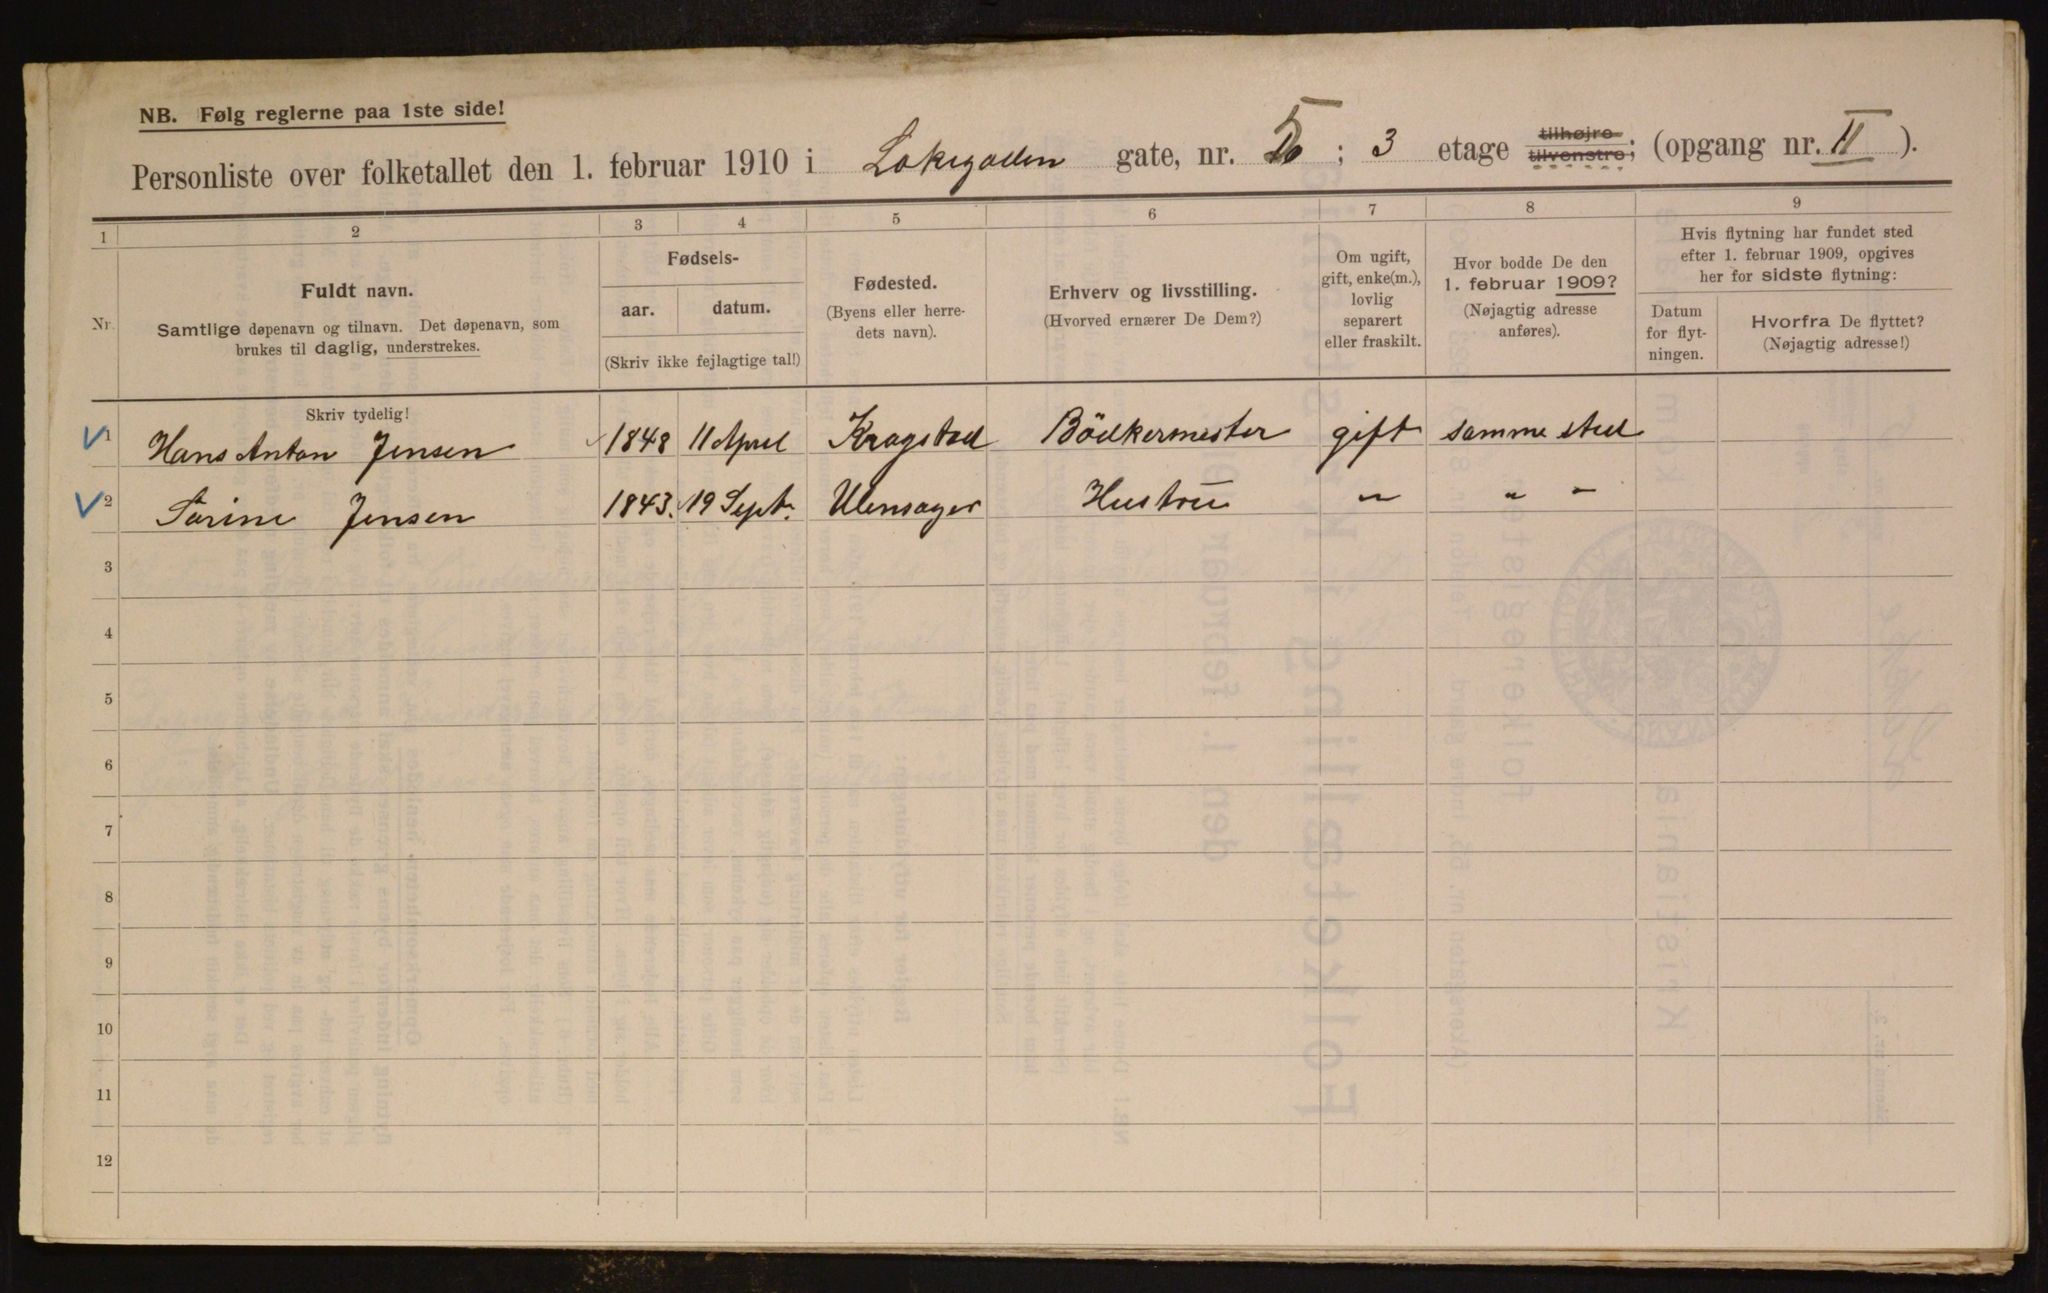 NB. Følg reglerne paa 1ste side!
Personliste over folketallet den 1. februar 1910 i Lakegaden gate, nr. 5; 3 etage tilhøjre tilvenstre; (opgang nr. II).
1 2 3 4 5 6 7 8 9
Nr. Fuldt navn. Samtlige døpenavn og tilnavn. Det døpenavn, som brukes til daglig, understrekes.
Fødsels- aar. datum. (Skriv ikke fejlagtige tal!)
Fødested. (Byens eller herredets navn).
Erhverv og livsstilling. (Hvorved ernærer De Dem?)
Om ugift, gift, enke(m.), lovlig separert eller fraskilt.
Hvor bodde De den 1. februar 1909? (Nøjagtig adresse anføres).
Hvis flytning har fundet sted efter 1. februar 1909, opgives her for sidste flytning:
Datum for flytningen.
Hvorfra De flyttet? (Nøjagtig adresse!)
Skriv tydelig!
1 Hans Anton Jensen 1848 11 April Kragstad Bödkermester gift samme sted
2 Sörine Jensen 1843. 19 Sept. Ulensager Hustru " " "
3
4
5
6
7
8
9
10
11
12